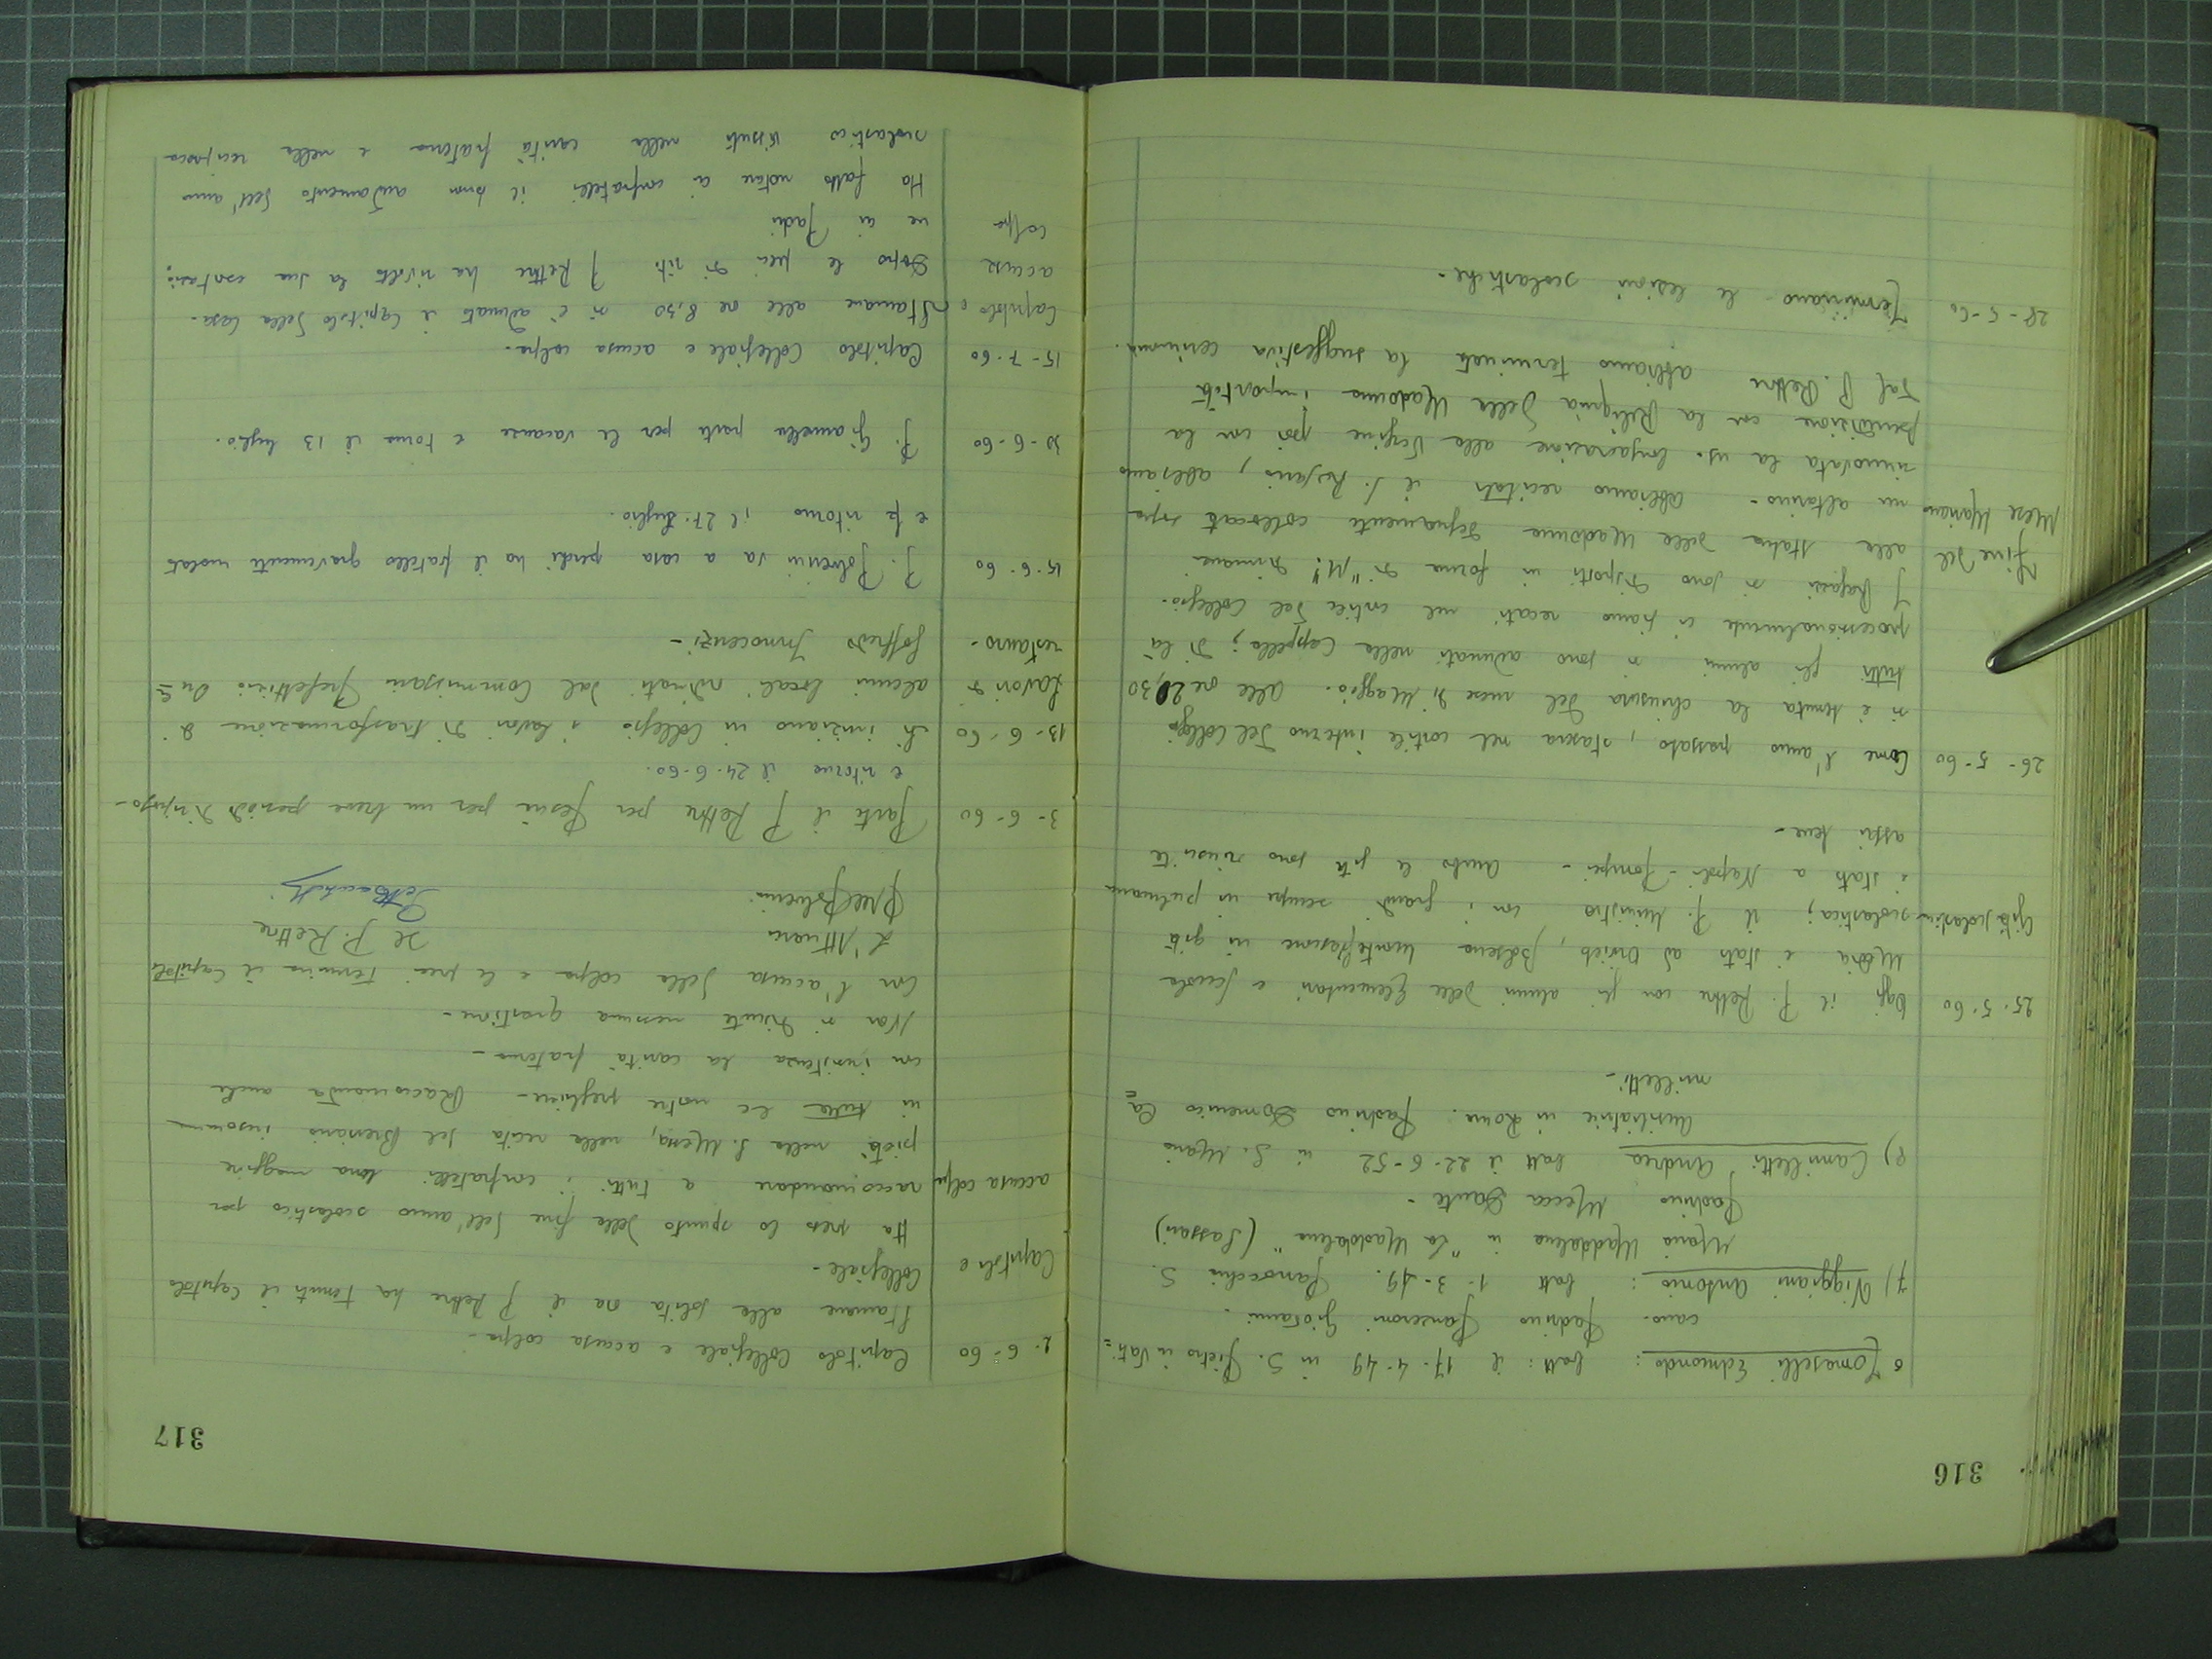 316
6 Tomaselli Edmondo: batt: il 17-4-49 in S. Pietro in Vati=
cano. Padrino Panzeroni Giovanni.
7) Viggiani Antonio: batt 1-3-49. Parrocchia S.
Maria Maddalena in "La Maddalena" (Sassari)
Padrino Mecca Dante -
8) Camilletti Andrea batt il 22-6-52 in S. Maria
Ausiliatrice in Roma. Padrino Domenico Ca=
milletti -
25-5-60 Oggi il P. Rettore con gli alunni delle Elementari e scuola
Media è stato ad Orvieto, Bolsena, Montefiascone in gita
Gita scolastica scolastica; il P. Ministro con i grandi sempre in pulmann
è stato a Napoli - Pompei - Ambo le gite sono riuscite
assai bene -
26-5-60 Come l'anno passato, stasera, nel cortile interno del Collegio
si è tenuta la chiusura del mese di Maggio. Alle ore 20,30
tutti gli alunni si sono adunati nella Cappella; di là
processionalmente ci siamo recati nel cortile del Collegio.
I Ragazzi si sono disposti in forma di "M" dinnanzi
Fine del alla statua della Madonna degnamente collocata sopra
Mese Mariano un altarino - Abbiamo recitato il S. Rosario, abbiamo
rinnovata la ns. Consacrazione alla Vergine e poi con la
benedizione con la Reliquia della Madonna impartita
dal P. Rettore abbiamo terminato la suggestiva cerimonia.
28-5-60 Terminano le lezioni scolastiche -
317
2-6-60 Capitolo Collegiale e accusa colpa -
Stamane alle solita ora il P. Rettore ha tenuto il Capitolo
Capitolo e Collegiale -
Ha preso lo spunto della fine dell'anno scolastico per
accusa colpa raccomandare a tutti i confratelli una maggiore
pietà nella S. Messa, nella recita del Breviario insomma
in tutte le nostre preghiere - Raccomanda anche
con insistenza la carità fraterna -
Non si discute nessuna questione -
Con l'accusa della colpa e le preci termina il Capitolo
L'Attuario Il P. Rettore
3-6-60 Parte il P. Rettore per Pesina per un breve periodo di riposo -
e ritorna il 24-6-60.
13-6-60 Si iniziano in Collegio i lavori di trasformazione di
Lavori di alcuni locali ordinati dal Commissario Prefettizio On=
restauro - Goffredo Innocenzi -
15-6-60 P. Polverini va a casa perché ha il fratello gravemente malato
e fa ritorno il 27. Luglio.
30-6-60 P. Giannella parte per le vacanze e torna il 13 luglio.
15-7-60 Capitolo Collegiale e accusa colpa -
Capitolo e Stamane alle ore 8,30 si è adunato il Capitolo della Casa.
accusa Dopo le preci di rito P Rettore ha rivolto la sua esortazio=
colpa ne ai Padri
Ha fatto notare ai confratelli il buon andamento dell'anno
scolastico vissuto nella carità fraterna e nella reciproca